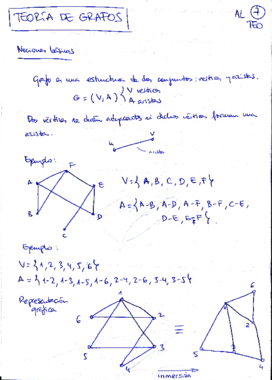 TEORÍA DE GRAFOS
AL 7
TEO
Nociones básicas
Grafo es una estructura de dos conjuntos: vértices y aristas.
G = (V, A) { V vértices
A aristas
Dos vértices se dirán adyacentes si dichos vértices forman una
arista.
u v
arista
Ejemplo:
F
A
E
B
D
C
V = { A, B, C, D, E, F }
A = { A-B, A-D, A-F, B-F, C-E,
D-E, E-F }
Ejemplo:
V = { 1, 2, 3, 4, 5, 6 }
A = { 1-2, 1-3, 1-5, 1-6, 2-4, 2-6, 3-4, 3-5 }
Representación
gráfica
1
6
2
5
3
4
≡
inmersión
6
1
2
3
5
4